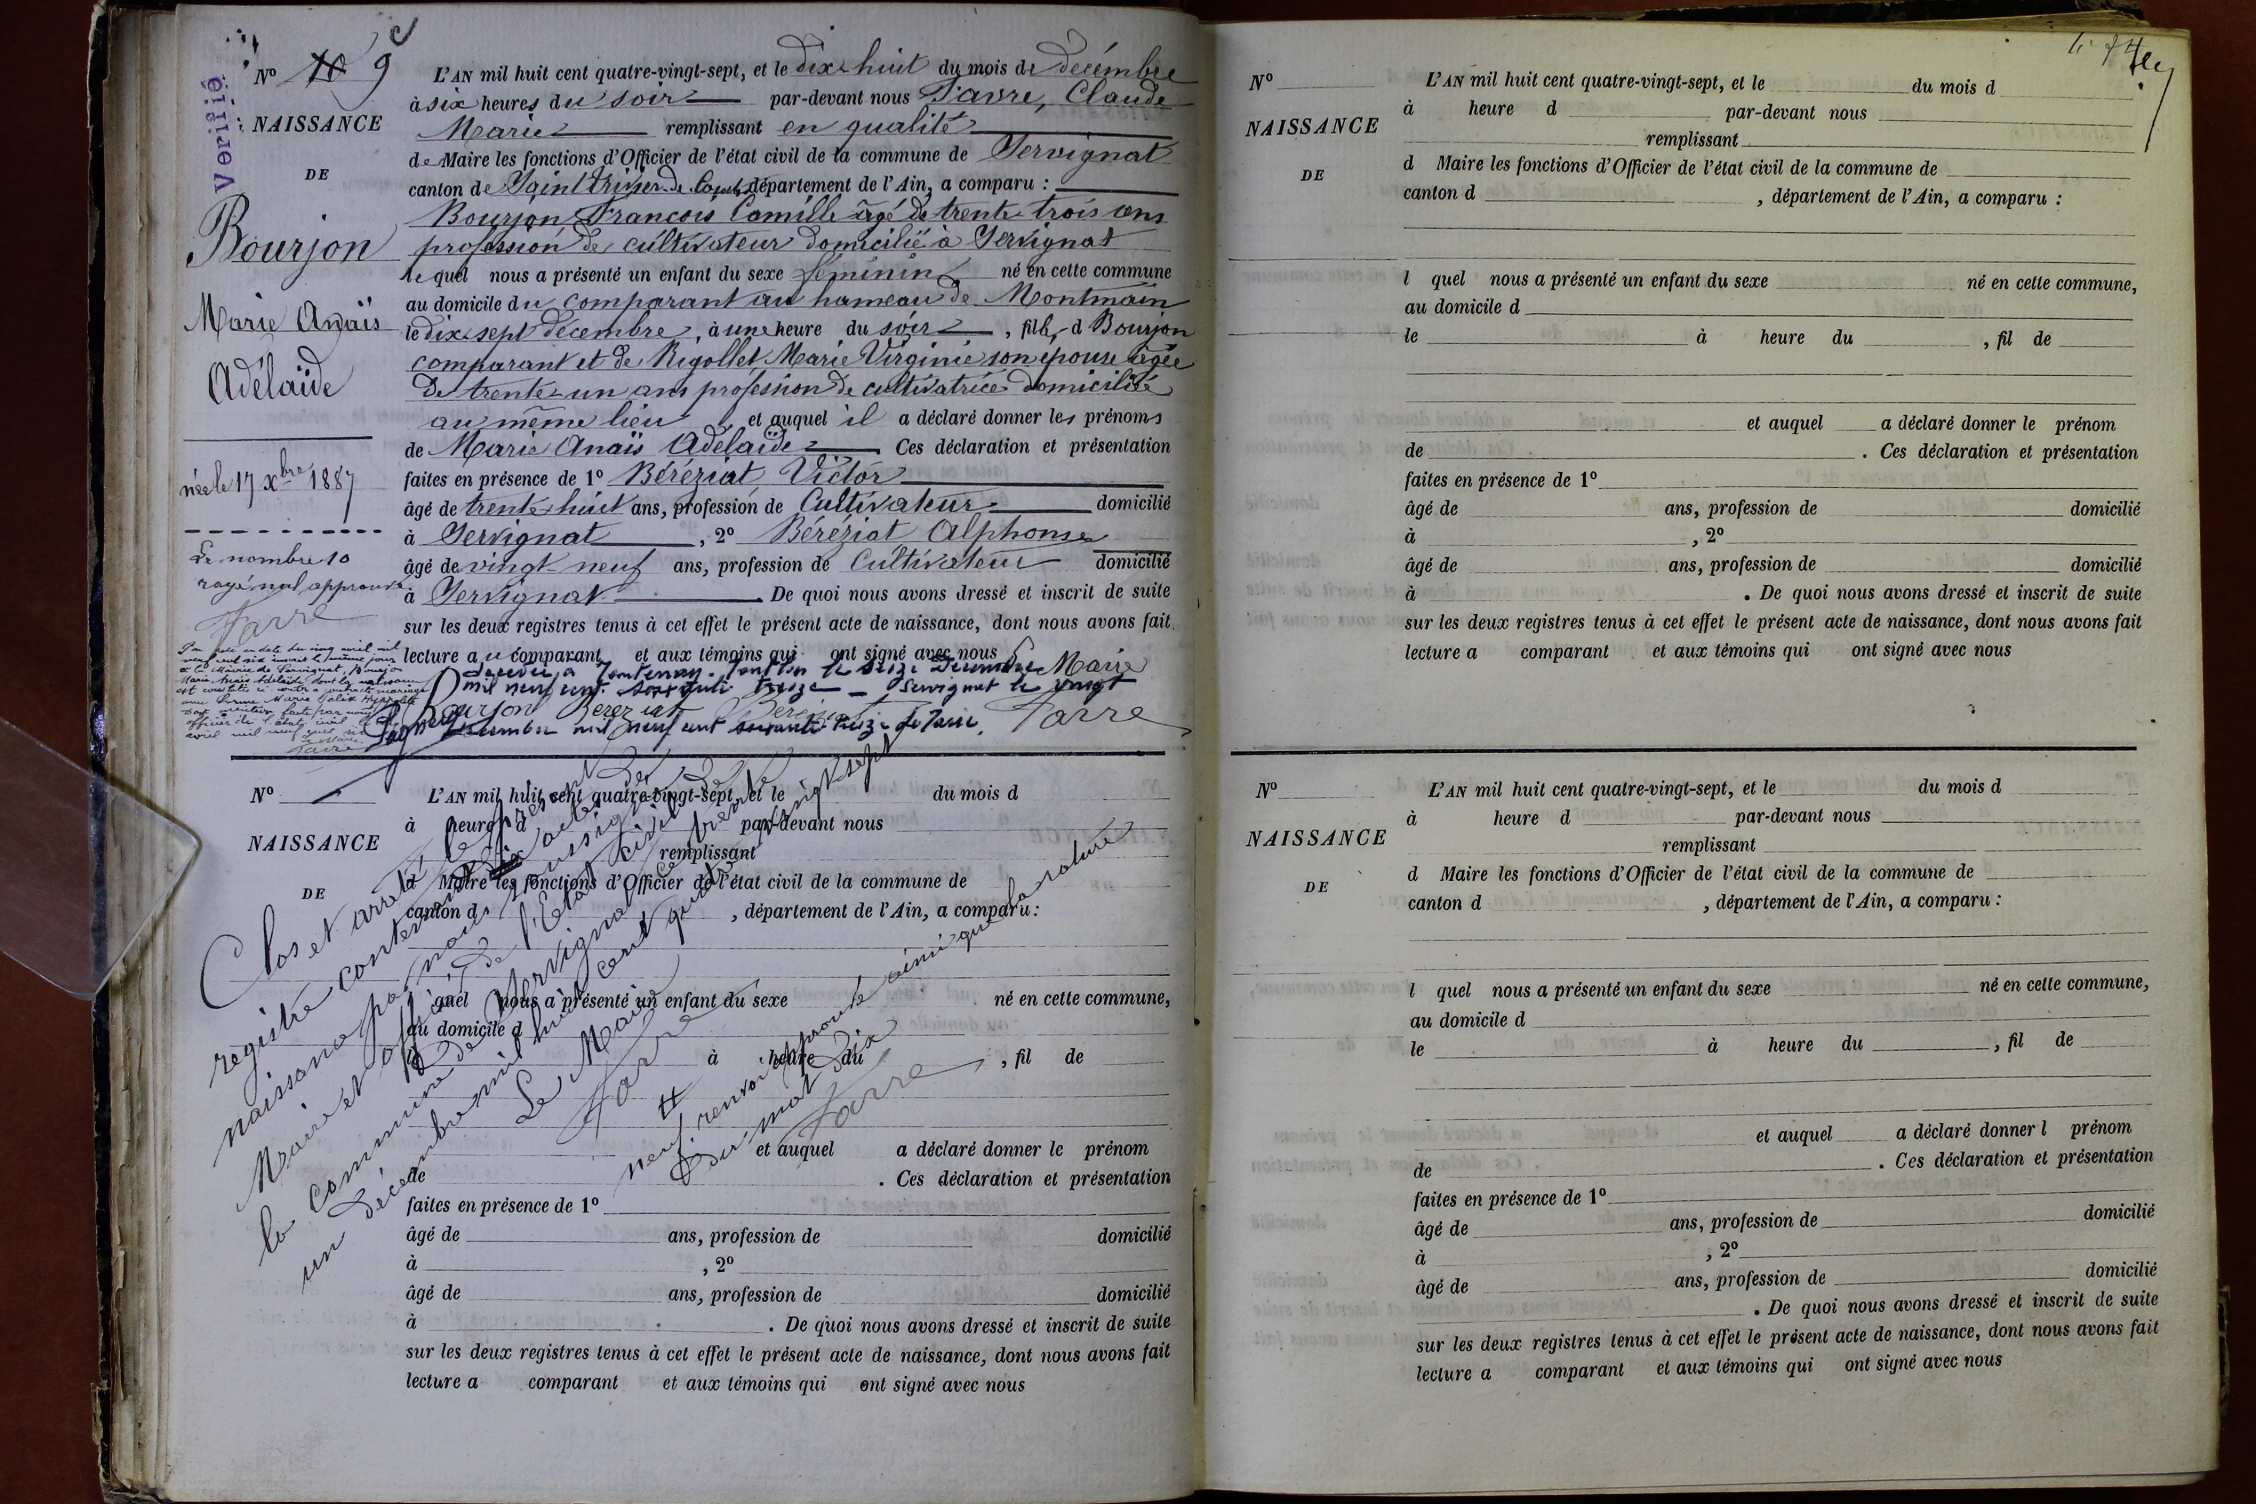 Vérifié
Nº 10 9
NAISSANCE
DE
Bourjon
Marie Anaïs
Adélaïde
née le 17 Xbre 1887
Le nombre 10
rayé nul approuvé
Favre
L'AN mil huit cent quatre-vingt-sept, et le dix-huit du mois de décembre
à six heures du soir par-devant nous Favre, Claude
Marie remplissant en qualité
de Maire les fonctions d'Officier de l'état civil de la commune de Servignat
canton de Saint Trivier de Courtes département de l'Ain, a comparu :
Bourjon François Camille âgé de trente-trois ans
profession de cultivateur domicilié à Servignat
lequel nous a présenté un enfant du sexe féminin né en cette commune
au domicile du comparant au hameau de Montmain
le dix-sept décembre, à une heure du soir, fille d Bourjon
comparant et de Rigollet Marie Virginie son épouse âgée
de trente-un ans profession de cultivatrice domiciliée
au même lieu et auquel il a déclaré donner les prénoms
de Marie Anaïs Adélaïde Ces déclaration et présentation
faites en présence de 1º Béréziat Victor
âgé de trente-huit ans, profession de Cultivateur domicilié
à Servignat, 2º Béréziat Alphonse
âgé de vingt-neuf ans, profession de Cultivateur domicilié
à Servignat. De quoi nous avons dressé et inscrit de suite
sur les deux registres tenus à cet effet le présent acte de naissance, dont nous avons fait
lecture au comparant et aux témoins qui ont signé avec nous
le seize Décembre
mil neuf cent soixante treize - Servignat le vingt
Décembre mil neuf cent soixante treize Le Maire
Le Maire
Bourjon Béréziat Béréziat Favre
Par acte en date du vingt avril mil
neuf cent six inscrit le même jour
à la Mairie de Servignat, Bourjon
Marie Anaïs Adélaïde dont la naissance
est constatée ci contre a contracté mariage
avec Marie Félix Hippolyte
officier de l'état civil
avril mil neuf cent six
Favre
Nº
NAISSANCE
DE
L'AN mil huit cent quatre-vingt-sept, et le du mois d
à heure d par-devant nous
remplissant
d Maire les fonctions d'Officier de l'état civil de la commune de
canton d , département de l'Ain, a comparu :
l quel nous a présenté un enfant du sexe né en cette commune,
au domicile d
le à heure du , fil de
et auquel a déclaré donner le prénom
de . Ces déclaration et présentation
faites en présence de 1º
âgé de ans, profession de domicilié
à , 2º
âgé de ans, profession de domicilié
à . De quoi nous avons dressé et inscrit de suite
sur les deux registres tenus à cet effet le présent acte de naissance, dont nous avons fait
lecture a comparant et aux témoins qui ont signé avec nous
Clos et arrêté le présent
registre contenant dix actes de
naissance par nous soussigné
Maire et officier de l'État civil de
la commune de Servignat ce trente
un décembre mil huit cent quatre vingt sept
Le Maire
Favre
neuf renvoi approuvé ainsi que la rature
du mot dix
Favre
Nº
NAISSANCE
DE
L'AN mil huit cent quatre-vingt-sept, et le du mois d
à heure d par-devant nous
remplissant
d Maire les fonctions d'Officier de l'état civil de la commune de
canton d , département de l'Ain, a comparu :
l quel nous a présenté un enfant du sexe né en cette commune,
au domicile d
le à heure du , fil de
et auquel a déclaré donner le prénom
de . Ces déclaration et présentation
faites en présence de 1º
âgé de ans, profession de domicilié
à , 2º
âgé de ans, profession de domicilié
à . De quoi nous avons dressé et inscrit de suite
sur les deux registres tenus à cet effet le présent acte de naissance, dont nous avons fait
lecture a comparant et aux témoins qui ont signé avec nous
Nº
NAISSANCE
DE
L'AN mil huit cent quatre-vingt-sept, et le du mois d
à heure d par-devant nous
remplissant
d Maire les fonctions d'Officier de l'état civil de la commune de
canton d , département de l'Ain, a comparu :
l quel nous a présenté un enfant du sexe né en cette commune,
au domicile d
le à heure du , fil de
et auquel a déclaré donner l prénom
de . Ces déclaration et présentation
faites en présence de 1º
âgé de ans, profession de domicilié
à , 2º
âgé de ans, profession de domicilié
. De quoi nous avons dressé et inscrit de suite
sur les deux registres tenus à cet effet le présent acte de naissance, dont nous avons fait
lecture a comparant et aux témoins qui ont signé avec nous